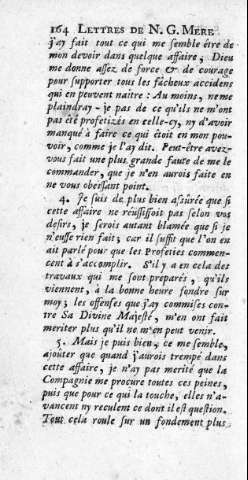 164 LETTRES DE N. G. MERE
j'ay fait tout ce qui me semble être de
mon devoir dans quelque affaire, Dieu
me donne assez de force & de courage
pour supporter tous les fâcheux accidens
qui en peuvent naitre: Au moins, ne me
plaindray-je pas de ce qu'ils ne m'ont
pas été profetizés en celle-cy, ny d'avoir
manqué à faire ce qui étoit en mon pou-
voir, comme je l'ay dit. Peut-être avez-
vous fait une plus grande faute de me le
commander, que je n'en aurois faite en
ne vous obeïssant point.
4. Je suis de plus bien assûrée que si
cette affaire ne reüssissoit pas selon vos
desirs, je serois autant blamée que si je
n'eusse rien fait; car il suffit que l'on en
ait parlé pour que les Profeties commen-
cent à s'accomplir. S'il y a en cela des
travaux qui me sont preparés, qu'ils
viennent, à la bonne heure fondre sur
moy; les offenses que j'ay commises con-
tre Sa Divine Majesté, m'en ont fait
meriter plus qu'il ne m'en peut venir.
5. Mais je puis bien, ce me semble,
ajoûter que quand j'aurois trempé dans
cette affaire, je n'ay pas merité que la
Compagnie me procure toutes ces peines,
puis que pour ce qui la touche, elles n'a-
vancent ny reculent ce dont il est question.
Tout cela roule sur un fondement plus